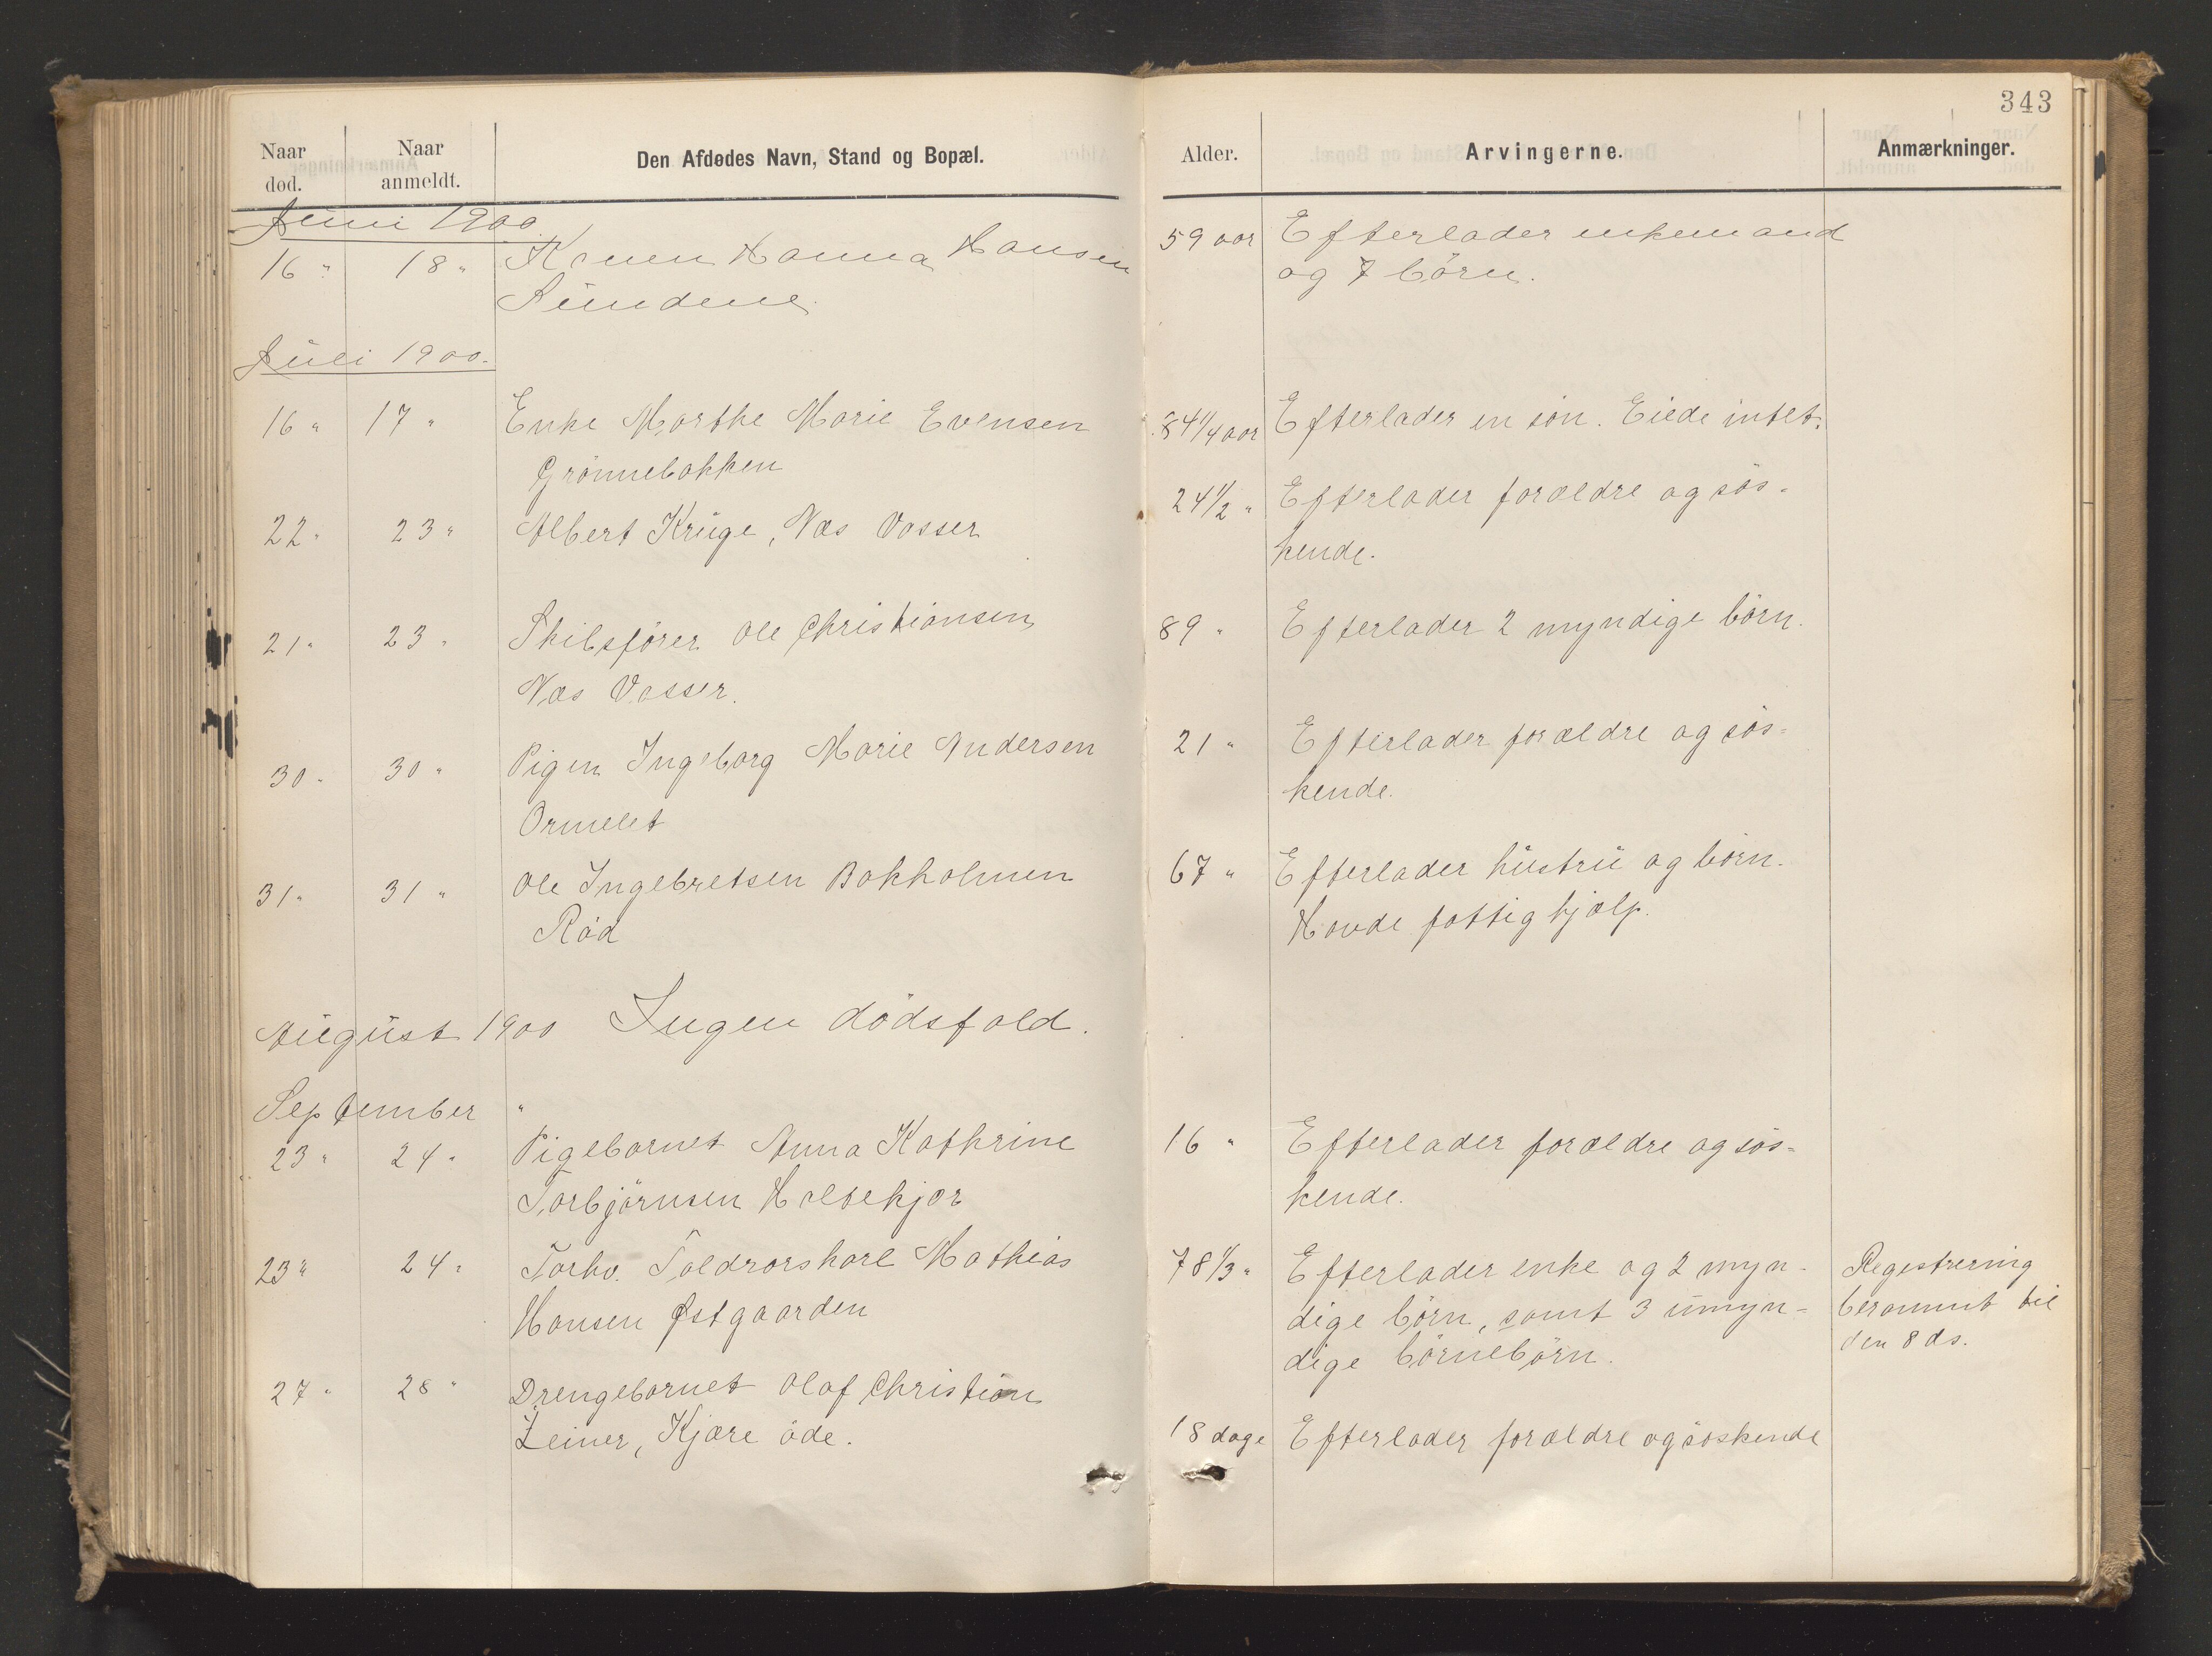 343
Naar død.
Naar anmeldt.
Den Afdødes Navn, Stand og Bopæl.
Alder.
Arvingerne.
Anmærkninger.
Juni 1900.
16 " 18 " Konen Hanna Hansen 59 aar Efterlader enkemand
Sundene og 7 börn.
Juli 1900.
16 " 17 " Enke Marthe Marie Evensen 84 1/4 aar Efterlader en sön. Eiede intet.
Grönnebakken
22 " 23 " Albert Krüge, Næs Vasser 24 1/2 " Efterlader forældre og sös-
kende.
21 " 23 " Skibsförer Ole Christiansen 89 " Efterlader 2 myndige börn.
Næs Vasser.
30 " 30 " Pigen Ingeborg Marie Andersen 21 " Efterlader forældre og sös-
Ormelet kende.
31 " 31 " Ole Ingebretsen Bakholmen 67 " Efterlader hustru og börn.
Röd Havde fattighjælp.
August 1900 Ingen dödsfald.
September "
23 " 24 " Pigebarnet Anna Kathrine 16 " Efterlader forældre og sös-
Torbjörnsen Holtekjær kende.
23 " 24 " Forhv. Toldrorskarl Mathias 78 1/3 " Efterlader enke og 2 myn- Regestrering
Hansen Østgaarden dige börn, samt 3 umyn- berammet til
dige börnebörn. den 8 ds.
27 " 28 " Drengebarnet Olaf Christian
Zeiner, Kjære öde. 18 dage Efterlader forældre og söskende